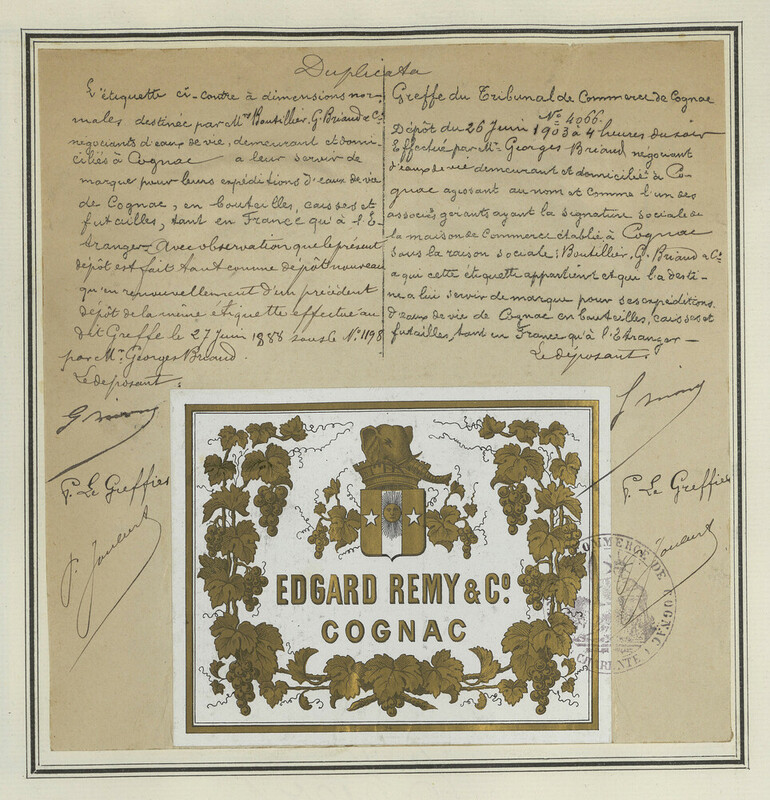 Duplicata
L'étiquette ci-contre à dimensions nor-
males destinée par Mrs Boutillier, G. Briand & Co
négociants d'eaux de vie, demeurant et domi-
ciliés à Cognac a leur servir de
marque pour leurs expéditions d'eaux de vie
de Cognac, en bouteilles, caisses et
futailles, tant en France qu'à l'E-
tranger — Avec observation que le présent
dépôt est fait tant comme dépôt nouveau
qu'en renouvellement d'un précédent
dépôt de la même étiquette effectué au
dit Greffe le 27 Juin 1888 sous le No 1198
par Mr. Georges Briand.
Le déposant :
P. Le Greffier
Greffe du Tribunal de Commerce de Cognac
No 4066.
Dépôt du 26 Juin 1903 à 4 heures du soir
Effectué par Mr. Georges Briand négociant
d'eaux de vie demeurant et domicilié à Co-
gnac agissant au nom et comme l'un des
associés gérants ayant la signature sociale de
la maison de Commerce établie à Cognac
sous la raison sociale : Boutillier, G. Briand & Co
a qui cette étiquette appartient et qui l'a desti-
née a lui servir de marque pour ses expéditions
d'eaux de vie de Cognac en bouteilles, caisses et
futailles, tant en France qu'à l'Etranger —
Le déposant :
P. Le Greffier
EDGARD REMY & Co.
COGNAC
COMMERCE DE COGNAC
CHARENTE